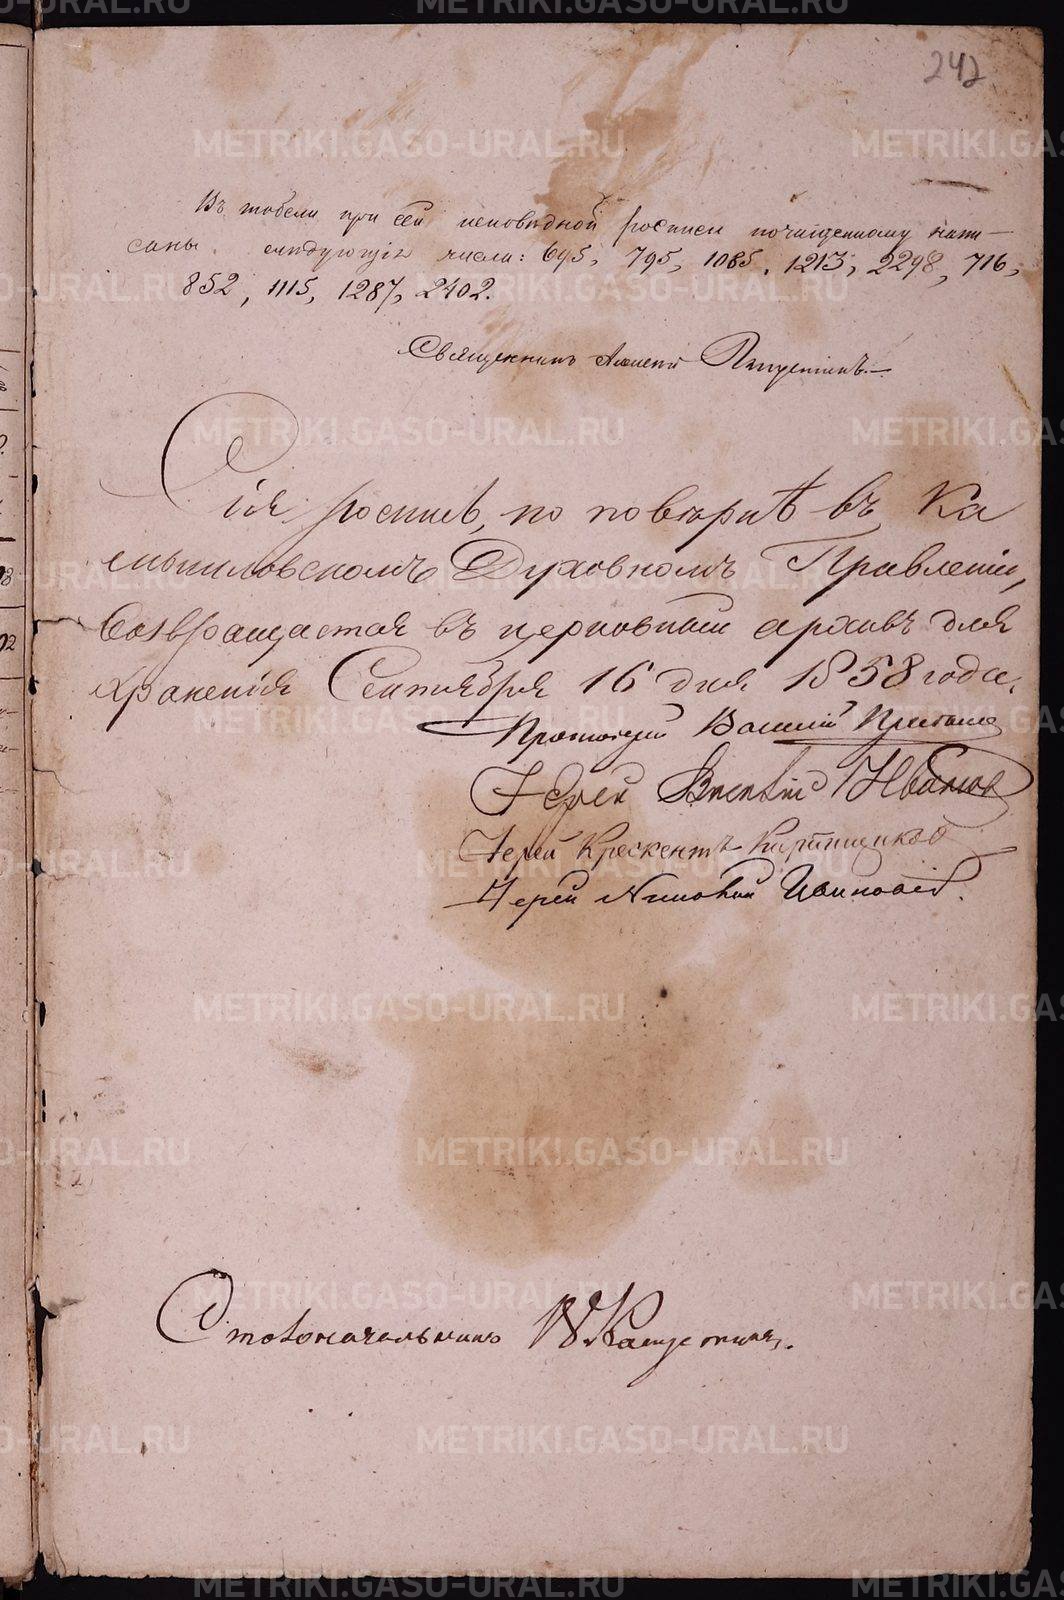 242
Въ табели при сей исповѣдной росписи почищенному напи-
саны слѣдующія числа: 695, 795, 1085, 1213, 2298, 716,
852, 1115, 1287, 2402.
Священникъ Алексѣй
Сія роспись, по повѣркѣ въ Ка
мышловскомъ Духовномъ Правленіи,
возвращается въ церковный архивъ для
храненія Сентября 16 дня 1858 года.
Протоіерей Василій
Іерей Ивановъ
Іерей Крескентъ Кирпищиковъ
Іерей
Столоначальникъ Капустинъ.
METRIKI.GASO-URAL.RU